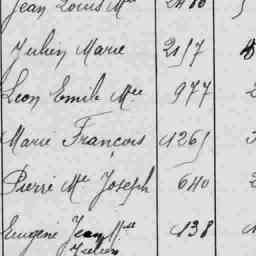 Jean Louis Mie
Julien Marie 2157
Léon Emile Mie 977
Marie François 1265
Pierre Mie Joseph 640
Eugène Jean Mie 138
Julien